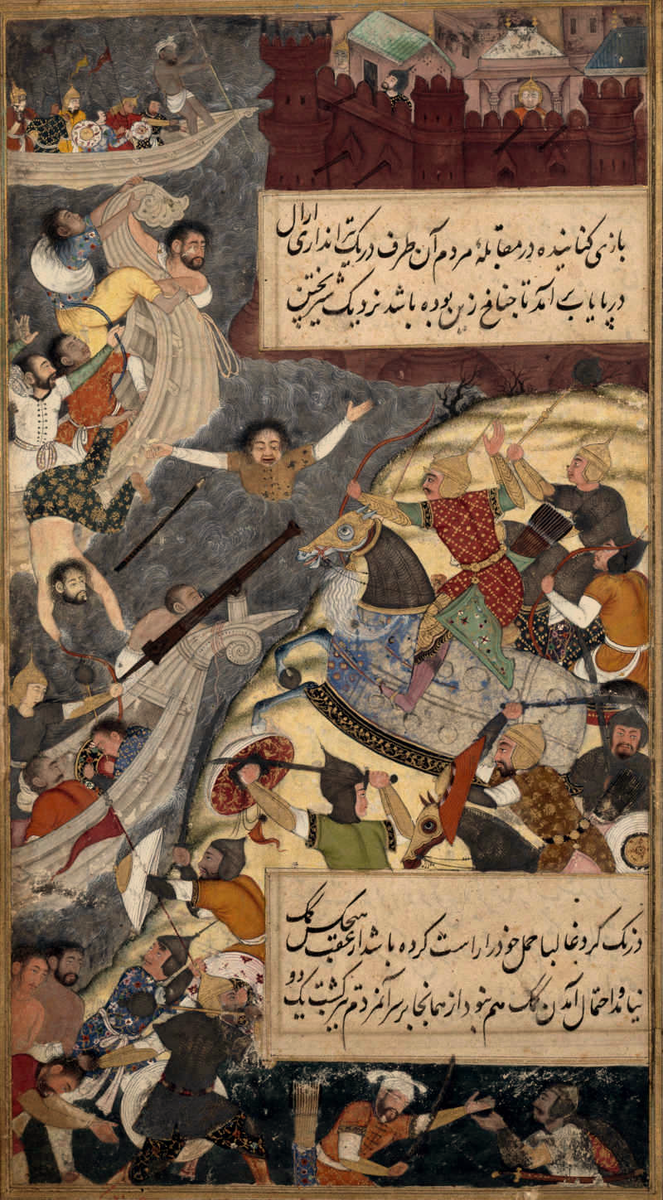 بازی کنانیده در مقابلهٔ مردم آن طرف دریک تیراندازی ارال
در پایاب برآمد تا جناغ زین بوده باشد نزدیک شیر پختن
درنگ کرد غالبا حمل خود را راست کرده باشد از عقب هیچکس کمک
نیامد و احتمال آمدن کمک هم نبود از همانجا بر سر آنمردم برگشت یک دو